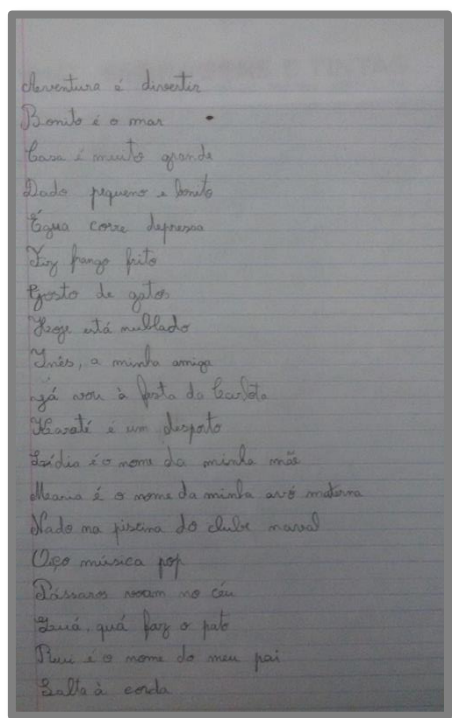 Aventura é divertir
Bonito é o mar
Casa é muito grande
Dado pequeno e bonito
Égua corre depressa
Fiz frango frito
Gosto de gatos
Hoje está nublado
Inês, a minha amiga
já vou à festa da Carlota
Karaté é um desporto
Lídia é o nome da minha mãe
Maria é o nome da minha avó materna
Nado na piscina do clube naval
Oiço música pop
Pássaros voam no céu
Quá, quá faz o pato
Rui é o nome do meu pai
Salta à corda